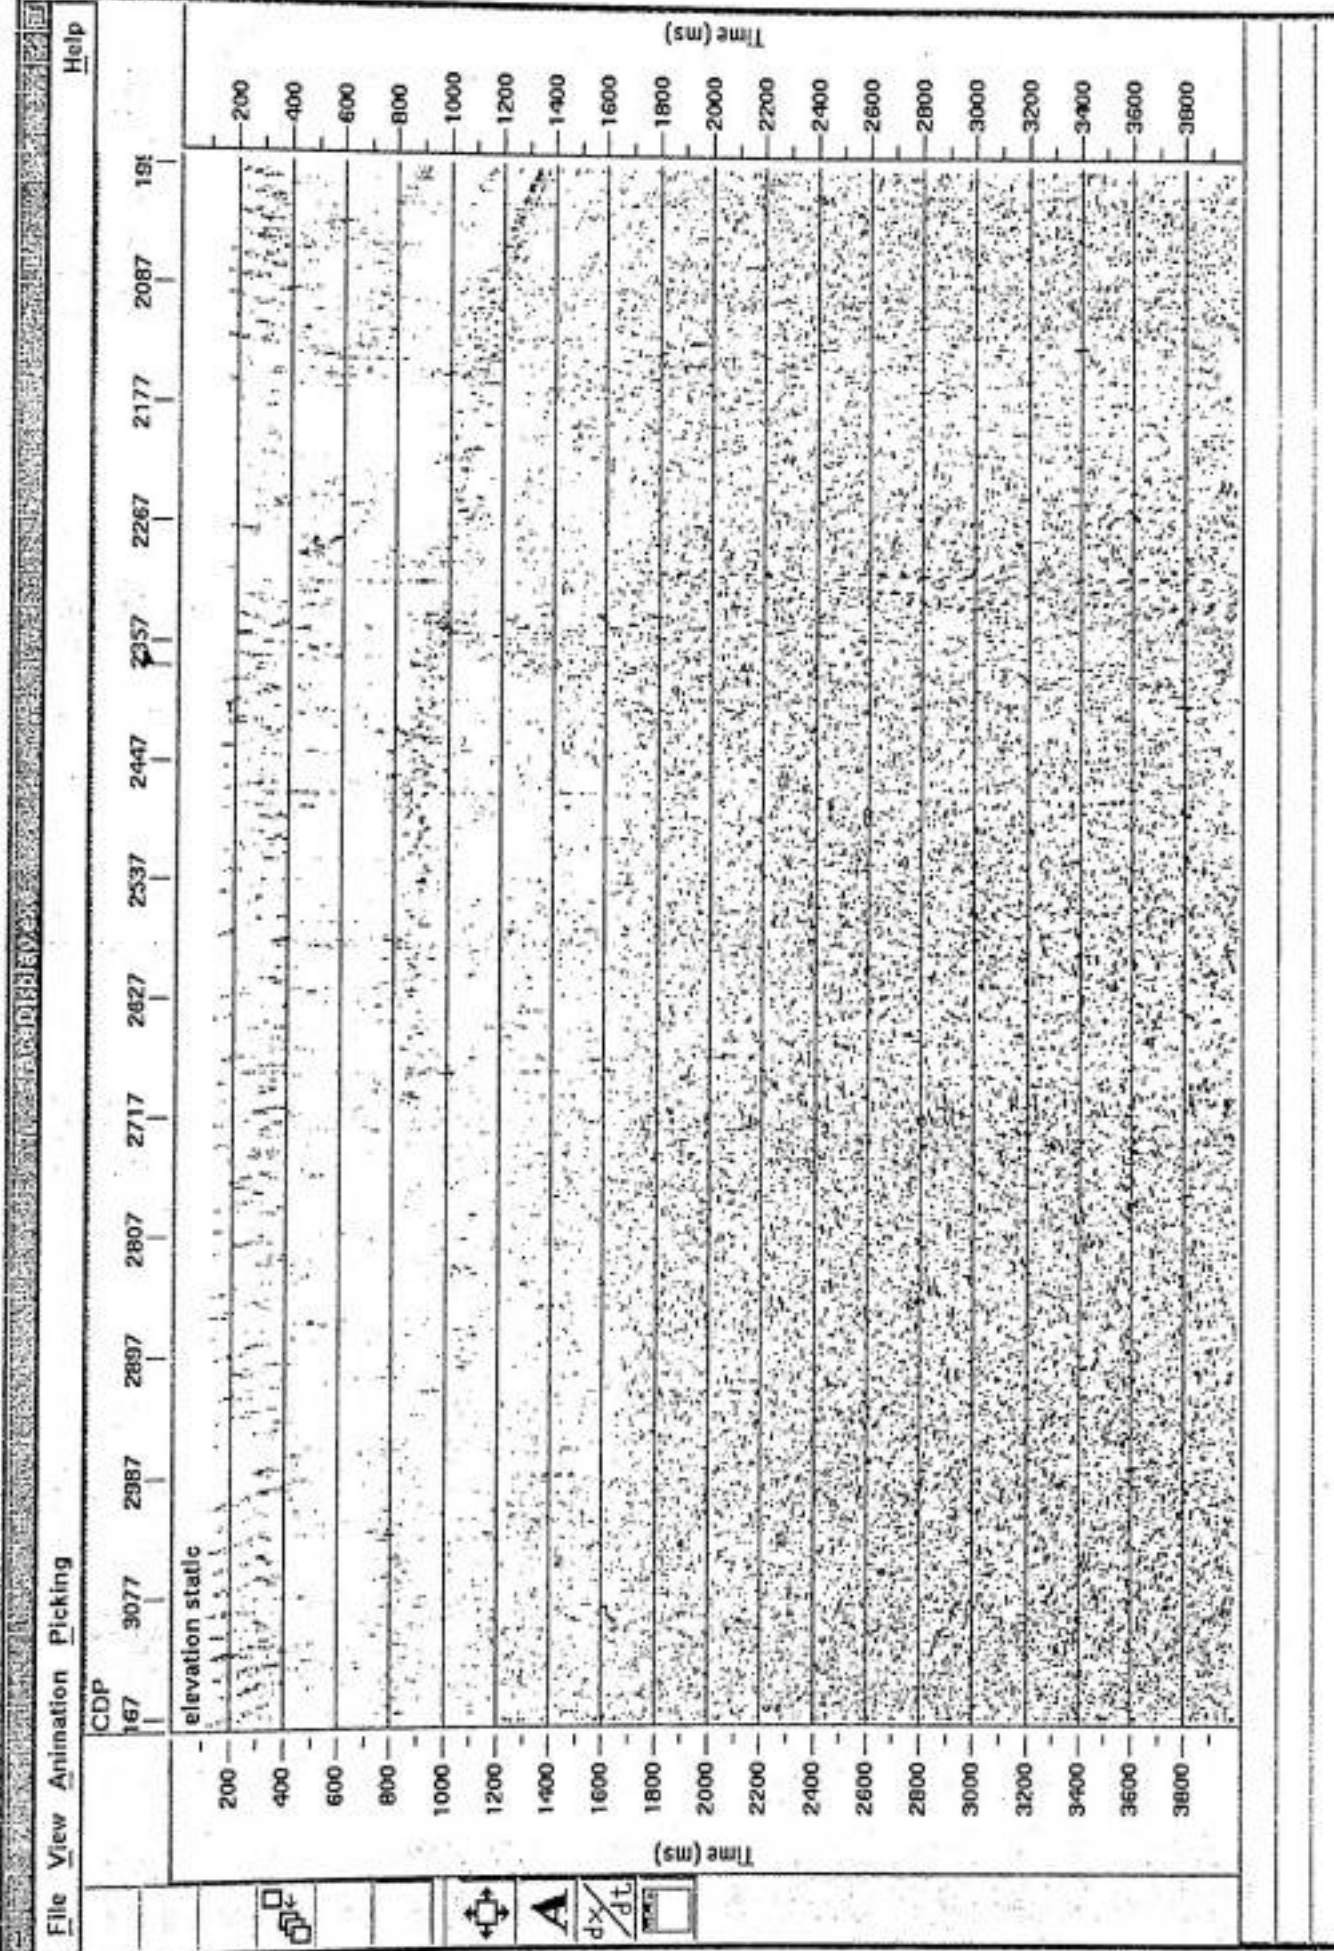 Trace Display
File View Animation Picking Help
CDP
167 3077 2987 2897 2807 2717 2627 2537 2447 2357 2267 2177 2087 19
elevation static
Time (ms)
200
400
600
800
1000
1200
1400
1600
1800
2000
2200
2400
2600
2800
3000
3200
3400
3600
3800
A
dx/dt
Time (ms)
200
400
600
800
1000
1200
1400
1600
1800
2000
2200
2400
2600
2800
3000
3200
3400
3600
3800